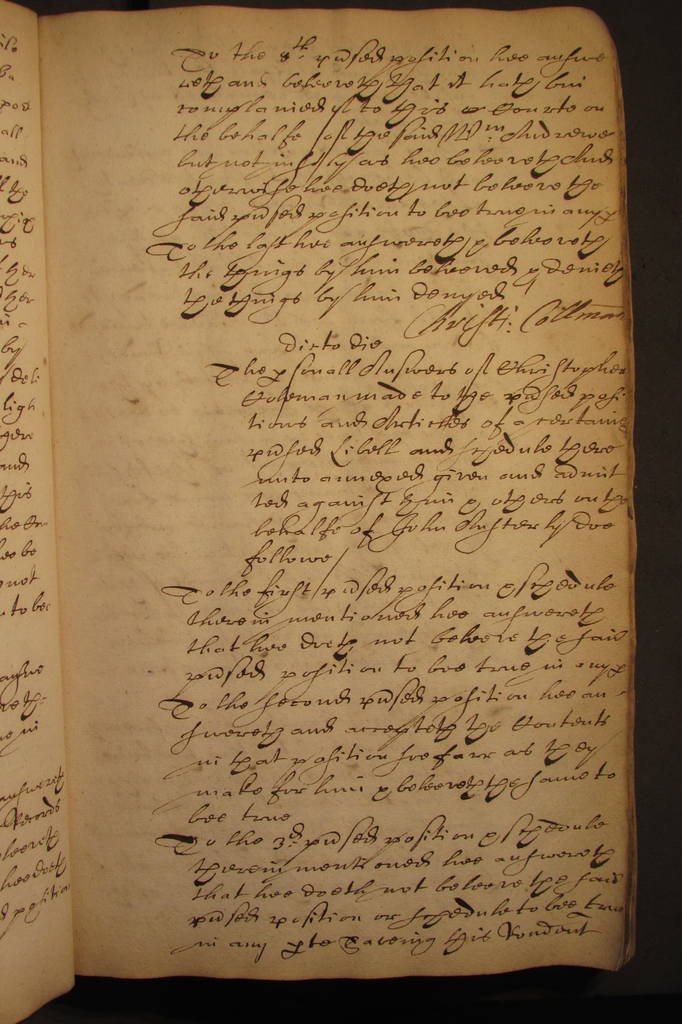 To the 8th prtsed position hee answe
reth and beleeveth that it hath bin
complained of to this Courte on
the behalfe of the said Wm Andrewes
but not justly as hee beleeveth And
otherwise hee doeth not beleeve the
said prtsed position to bee true in any p
To the last hee answereth & beleeveth
the things by him beleeved & denieth
the things by him denyed
Christ: Collman
dicto die
The psonall Answers of Christopher
Coleman made to the prtsed posi
tions and Articles of a certaine
prtsed Libell and schedule there
unto annexed given and admit
ted against him & others on the
behalfe of John Austerly doe
followe
To the first prtsed position & schedule
therein mentioned hee answereth
that hee doeth not beleeve the said
prtsed position to bee true in any p
To the second prtsed position hee an
swereth and accepteth the Contents
in that position soe farr as they
make for him & beleeveth the same to
bee true
To the 3d prtsed position & schedule
therein mentioned hee answereth
that hee doeth not beleeve the said
prtsed position or schedule to bee true
in any pte Saveing this Rondent